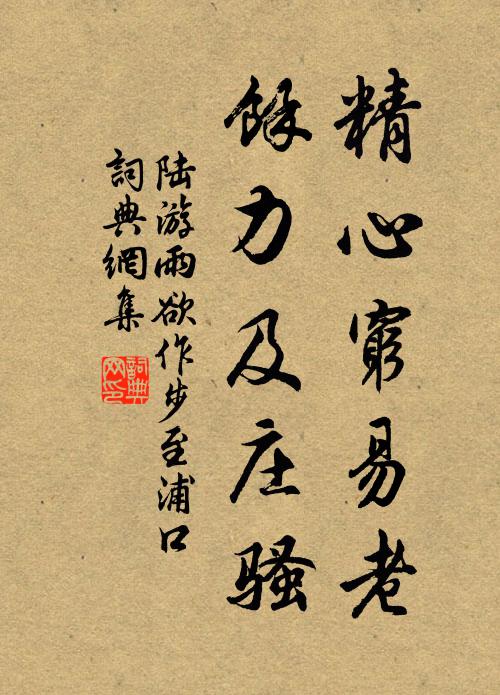 精心窮易老
餘力及庄騷
陸游雨欲作步至浦口
詞典網集
詞典
网印